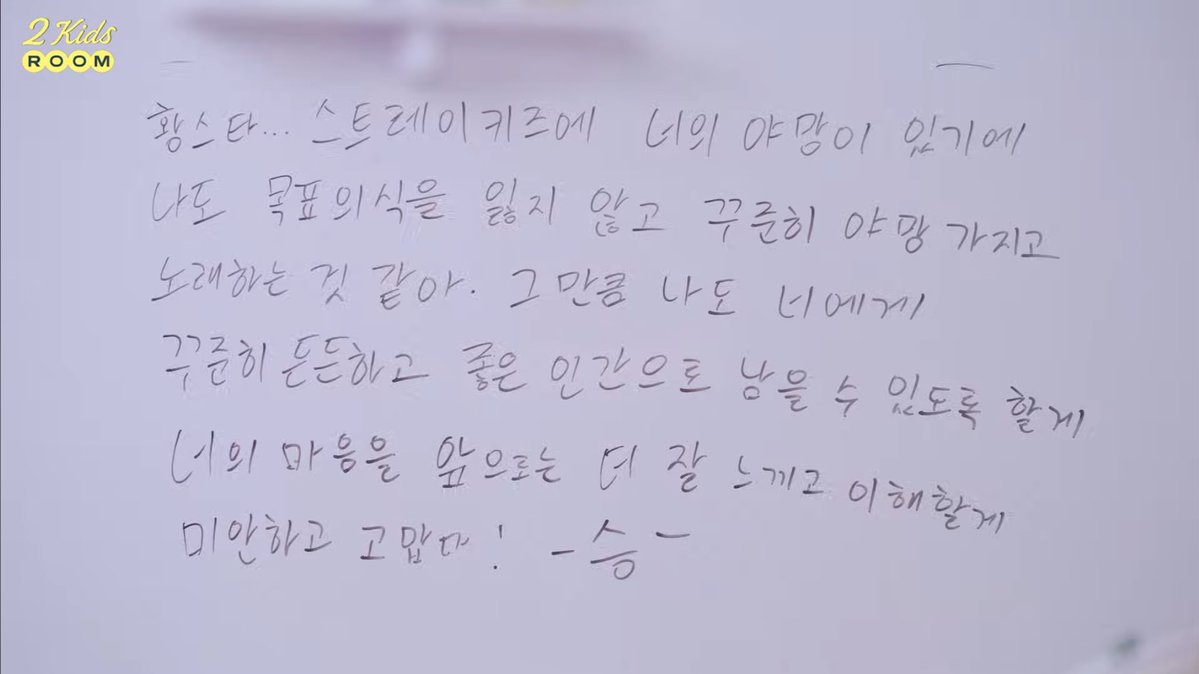 2 Kids
ROOM
황스타... 스트레이키즈에 너의 야망이 있기에
나도 목표의식을 잃지 않고 꾸준히 야망 가지고
노래하는 것 같아. 그만큼 나도 너에게
꾸준히 든든하고 좋은 인간으로 남을 수 있도록 할게
너의 마음을 앞으로는 더 잘 느끼고 이해할게
미안하고 고맙다! -승-